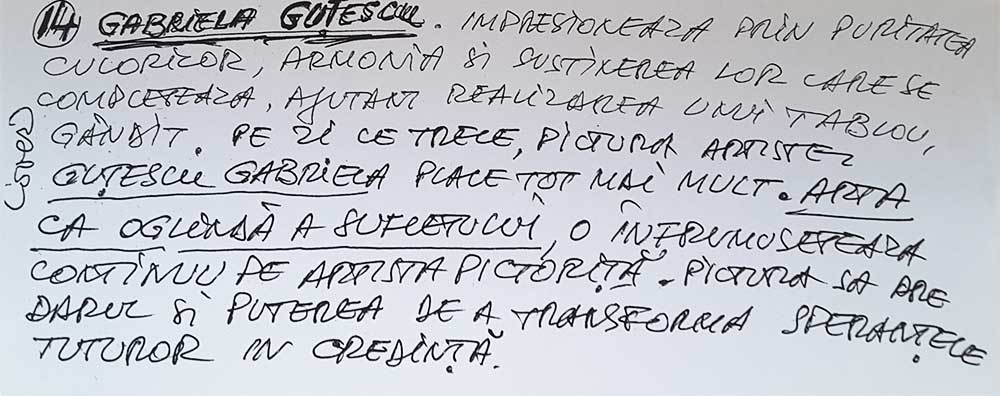 14 GABRIELA GUȚESCU. IMPRESIONEAZA PRIN PURITATEA
CULORILOR, ARMONIA SI SUSTINEREA LOR CARE SE
COMPLETEAZA, AJUTANT REALIZAREA UNUI TABLOU,
GÂNDIT. PE ZI CE TRECE, PICTURA ARTISTEI
GUȚESCU GABRIELA PLACE TOT MAI MULT. ARTA
CA OGLINDĂ A SUFLETULUI, O ÎNFRUMUSETEAZA
CONTINUU PE ARTISTA PICTORIȚĂ. PICTURA SA ARE
DARUL SI PUTEREA DE A TRANSFORMA SPERANȚELE
TUTUROR IN CREDINȚĂ.